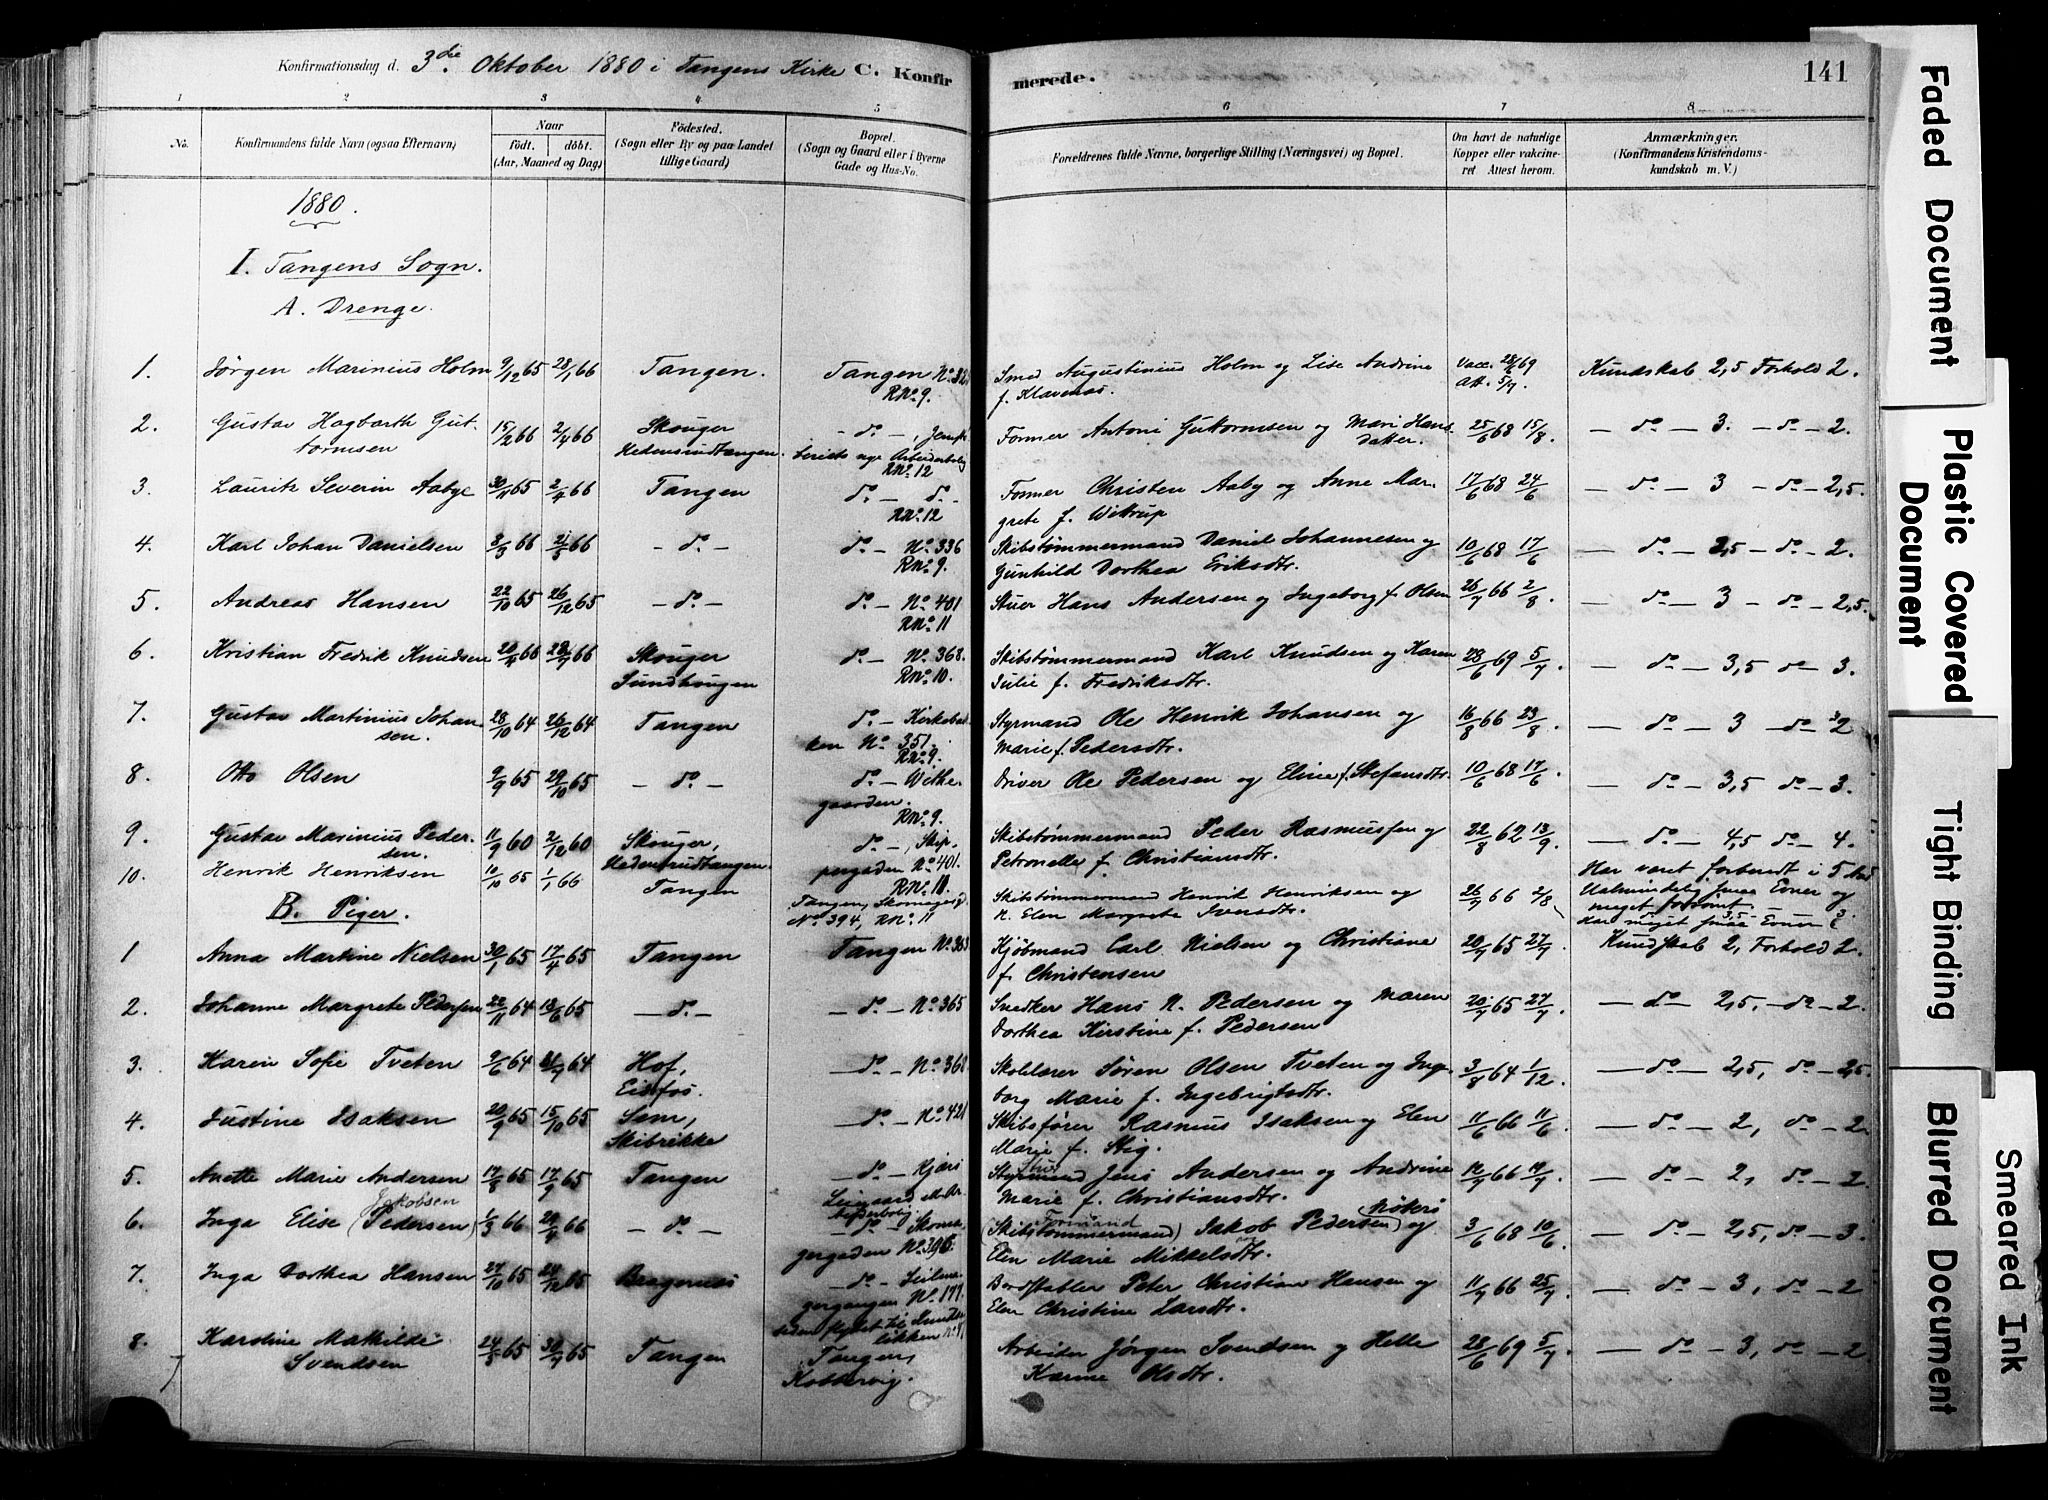 Konfirmationsdag d. 3die Oktober 1880 i Tangens Kirke C. Konfirmerede. 141
1 2 3 4 5 6 7 8
No.
Konfirmandens fulde Navn (ogsaa Efternavn)
Naar
født. døbt.
(Aar, Maaned og Dag)
Fødested.
(Sogn eller By og paa Landet
tillige Gaard)
Bopæl.
(Sogn og Gaard eller i Byerne
Gade og Hus-No.
Forældrenes fulde Navne, borgerlige Stilling (Næringsvei) og Bopæl.
Om havt de naturlige
Kopper eller vakcine-
ret Attest herom.
Anmærkninger.
(Konfirmandens Kristendoms-
kundskab m. V.)
1880.
I. Tangens Sogn.
A. Drenge.
1. Jørgen Marinius Holm 9/12 65 28/1 66 Tangen. Tangen No. 32
RNo. 9.
Smed Augustinius Holm og Lise Andrine
f. Klavenæs.
Vacc. 28/6 69
Att. 5/7.
Kundskab 2,5 Forhold 2.
2. Gustav Hagbarth Gut-
tormsen 15/2 66 2/4 66 Skouger
Hedensrudtangen.
- do -, Jernfa-
beriets nye Arbeiderbolig
RNo. 12
Former Anton Guttormsen og Mari Hans-
datter. 25/6 68 15/8. - do - 3. - do - 2.
3. Laurits Severin Aabye 30/11 65 2/4 66 Tangen do. - do. -
RNo. 12
Former Christen Aaby og Anne Mar-
grete f. Witrup 17/6 68 24/6 - do - 3 - do - 2,5.
4. Karl Johan Danielsen 3/3 66 21/5 66 - do - do. - No. 336
RNo. 9.
Skibstømmermand Daniel Johannesen og
Gunhild Dorthea Eriksdtr. 10/6 68 17/6 - do - 2,5 - do - 2.
5. Andreas Hansen 22/10 65 26/12 65 - do - do - No. 401
RNo. 11
Stuer Hans Andersen og Ingeborg f. Olsen 26/7 66 2/8. - do - 3 - do - 2,5.
6. Kristian Fredrik Knudsen 20/4 66 28/7 66 Skouger
Sundhaugen
do - No. 368.
RNo. 10.
Skibstømmermand Karl Knudsen og Karen
Julie f. Fredriksdtr. 28/6 69 5/7 - do - 3,5 do - 3.
7. Gustav Martinius Johan-
sen. 28/10 64 26/12 64 Tangen do - Kirkebak-
ken No. 351.
RNo. 9.
Styrmand Ole Henrik Johansen og
Marie f. Pedersdtr. 16/8 66 23/8 - do - 3 do - 2
8. Otto Olsen 9/9 65 29/10 65 - do - do - Withe-
gaarden.
RNo. 9.
Driver Ole Pedersen og Eline f. Stefansdtr. 10/6 68 17/6 - do - 3,5 do - 3.
9. Gustav Marinius Peder-
sen. 11/9 60 2/12 60 Skouger,
Hedensrudtangen.
do -, Skip-
pergaden No. 401.
RNo. 10.
Skibstømmermand Peder Rasmussen og
Petronelle f. Christiansdtr. 22/8 62 13/9. - do - 4,5 do - 4.
Har været forberedt i 5 Aar
Ualmindelig smaa Evner og
meget forsømt.
10. Henrik Henriksen 10/10 65 1/1 66 Tangen Tangen, Skomagerg.
No. 394, RNo. 11
Skibstømmermand Henrik Henriksen og
Elen Margrete Iversdtr. 26/7 66 2/8
Har meget smaa Evner
B. Piger.
1 Anna Martine Nielsen 30/1 65 17/4 65 Tangen Tangen No. 363
Kjøbmand Carl Nielsen og Christiane
f. Christensen 20/7 65 27/7 Kundskab 2, Forhold 2.
2. Johanne Margrete Pedersen 22/11 64 18/6 65 - do - - do - No. 365
Snedker Hans N. Pedersen og Maren
Dorthea Kirstine f. Pedersen 20/7 65 27/7 - do - 2,5, - do - 2.
3. Karen Sofie Tveten 2/6 64 31/7 64 Hof,
Eidsfos.
- do - No. 368
Skolelærer Søren Olsen Tveten og Inge-
borg Marie f. Ingebrigtsdtr. 3/8 64 1/12. - do - 2,5, do - 2,5.
4. Justine Isaksen 20/9 65 15/10 65 Sem,
Skibrikke
- do - No. 421
Skibsfører Rasmus Isaksen og Elen
Marie f. Stig. 11/6 66 11/6 - do - 2, do - 2.
5. Anette Marie Andersen 17/8 65 17/9 65 Tangen - do - Kjøri
Arbeiderbolig.
Stuer
Styrmand Jens Andersen og Andrine
Marie f. Christiansdtr. 12/7 66 19/7. - do - 2, do - 2.
Jakobsen
6. Inga Elise (Pedersen) 1/3 66 29/4 66 - do - - do - Skoma-
gergaden No. 396.
Formand
(Skibstømmermand) Jakob Pedersen og
Elen Marie Mikkelsdtr. 3/6 68 10/6. - do - 2,5, do - 3.
7. Inga Dorthea Hansen 27/10 65 24/12 65 Bragernæs - do - Seilma-
gergangen No. 177.
Bordstabler Peter Christian Hansen og
Elen Christine Larsdtr. 11/7 66 25/7 - do - 3, do - 2
8. Karoline Mathilde
Svendsen 24/5 65 30/7 65 Tangen Tangen,
Kobbervig.
Arbeider Jørgen Svendsen og Helle
Karine Olsdtr. 28/6 69 5/7. - do - 3, do - 2
Faded Document
Plastic Covered
Document
Tight Binding
Blurred Document
Smeared Ink